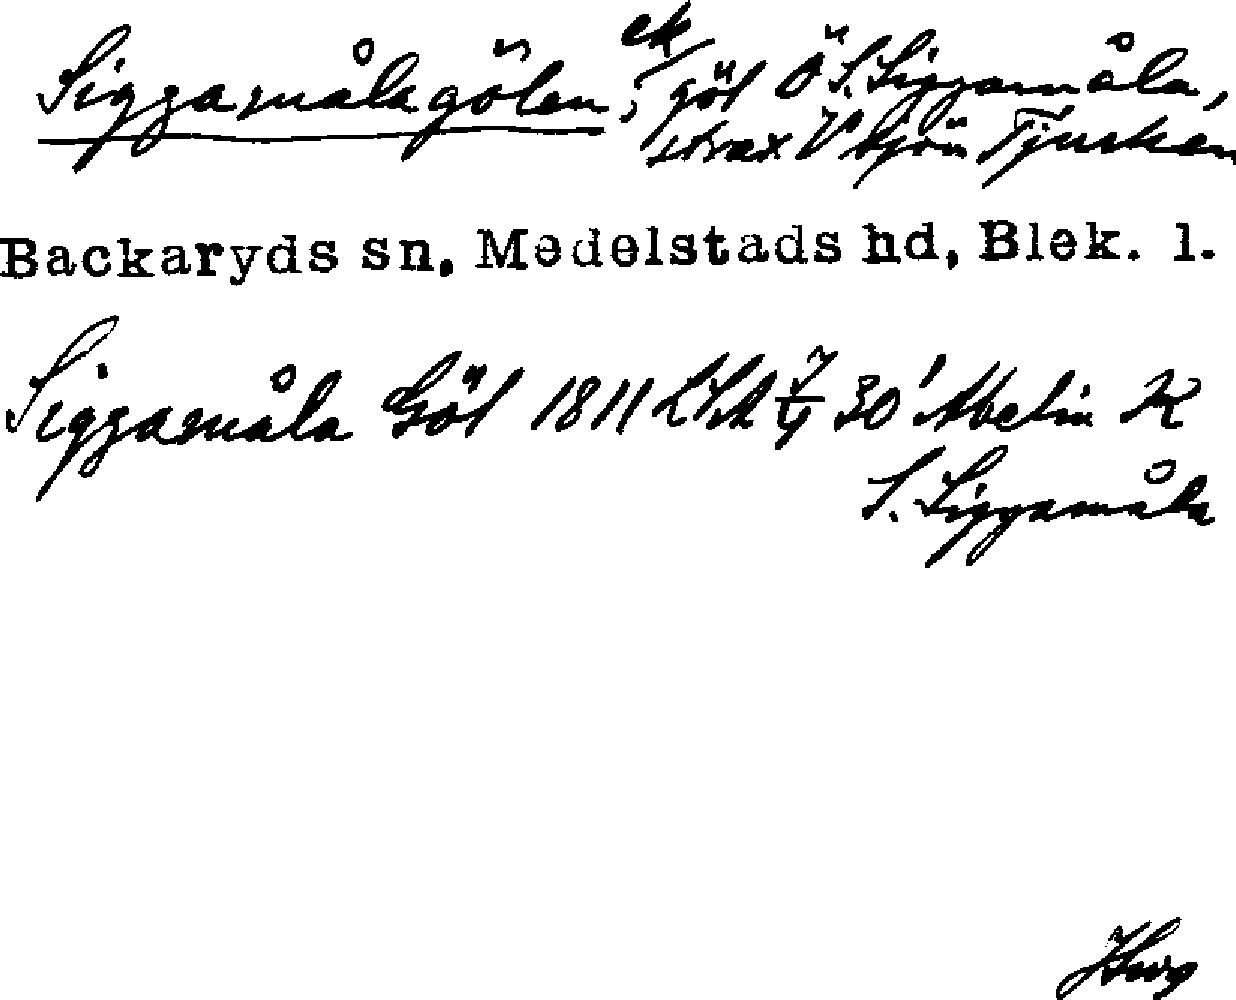 Siggamålagölen, ek göl Ö S. Siggamåla,
strax V sjön Tjurken
Backaryds sn, Medelstads hd, Blek. l.
Siggamåla Göl 1811 LSA 7/9 30' Abelin K
S. Siggamåla